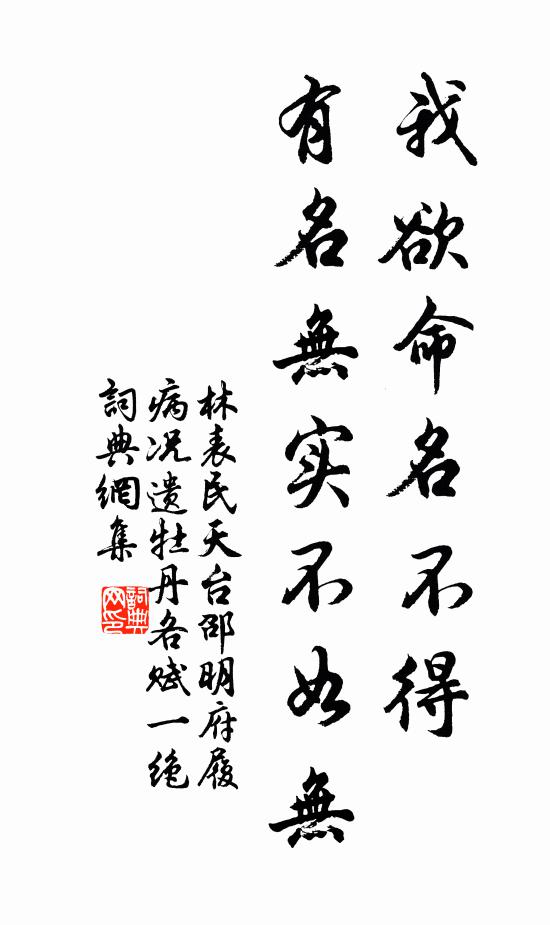 我欲命名不得
有名無实不如無
林表民天台邵明府履
病况遗牡丹各赋一绝
詞典網集
詞典网印